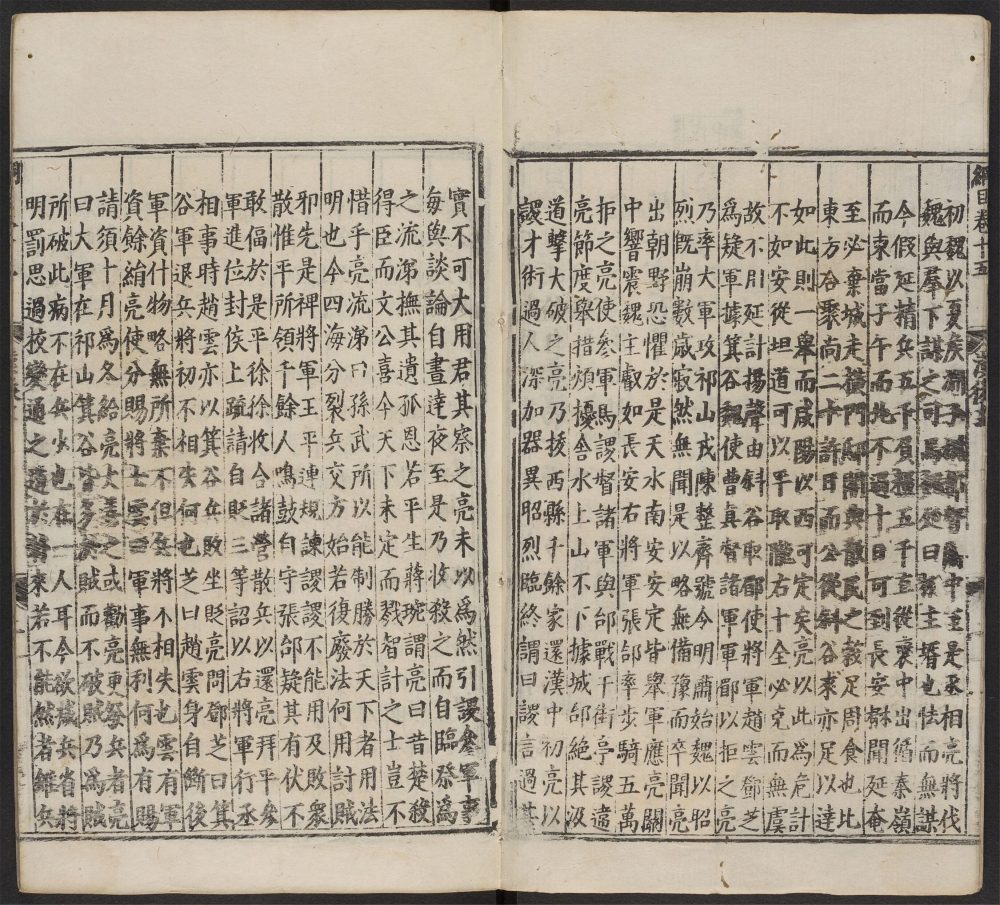 綱目卷十五 漢後主
初魏以夏侯淵子楙都督關中至是丞相亮將伐
魏與羣下謀之司馬魏延曰楙主壻也怯而無謀
今假延精兵五千負糧五千直從褒中出循秦嶺
而東當子午而北不過十日可到長安楙聞延奄
至必棄城走橫門邸閣與散民之穀足周食也比
東方合聚尚二十許日而公從斜谷來亦足以達
如此則一舉而咸陽以西可定矣亮以此爲危計
不如安從坦道可以平取隴右十全必克而無虞
故不用延計揚聲由斜谷取郿使將軍趙雲鄧芝
爲疑軍據箕谷魏使曹真督諸軍軍郿以拒之亮
乃率大軍攻祁山戎陳整齊號令明肅始魏以昭
烈旣崩數歲寂然無聞是以略無備豫而卒聞亮
出朝野恐懼於是天水南安安定皆舉軍應亮關
中響震魏主叡如長安右將軍張郃率步騎五萬
拒之亮使參軍馬謖督諸軍與郃戰于街亭謖違
亮節度舉措煩擾舍水上山不下據城郃絕其汲
道擊大破之亮乃拔西縣千餘家還漢中初亮以
謖才術過人深加器異昭烈臨終謂曰謖言過其
實不可大用君其察之亮未以爲然引謖參軍事
每與談論自晝達夜至是乃收殺之而自臨祭爲
之流涕撫其遺孤恩若平生蔣琬謂亮曰昔楚殺
得臣而文公喜今天下未定而戮智計之士豈不
惜乎亮流涕曰孫武所以能制勝於天下者用法
明也今四海分裂兵交方始若復廢法何用討賊
邪先是裨將軍王平連規諫謖謖不能用及敗衆
散惟平所領千餘人鳴鼓自守張郃疑其有伏不
敢偪於是平徐徐收合諸營散兵以還亮拜平參
軍進位封侯上疏請自貶三等詔以右將軍行丞
相事時趙雲亦以箕谷兵敗坐貶亮問鄧芝曰箕
谷軍退兵將初不相失何也芝曰趙雲身自斷後
軍資什物略無所棄不但兵將不相失也雲有軍
資餘絹亮使分賜將士雲曰軍事無利何爲有賜
請須十月爲冬給亮大善之或勸亮更發兵者亮
曰大軍在祁山箕谷皆多於賊而不破賊乃爲賊
所破此病不在兵少也在一人耳今欲減兵省將
明罰思過挍變通之道於將來若不能然者雖兵